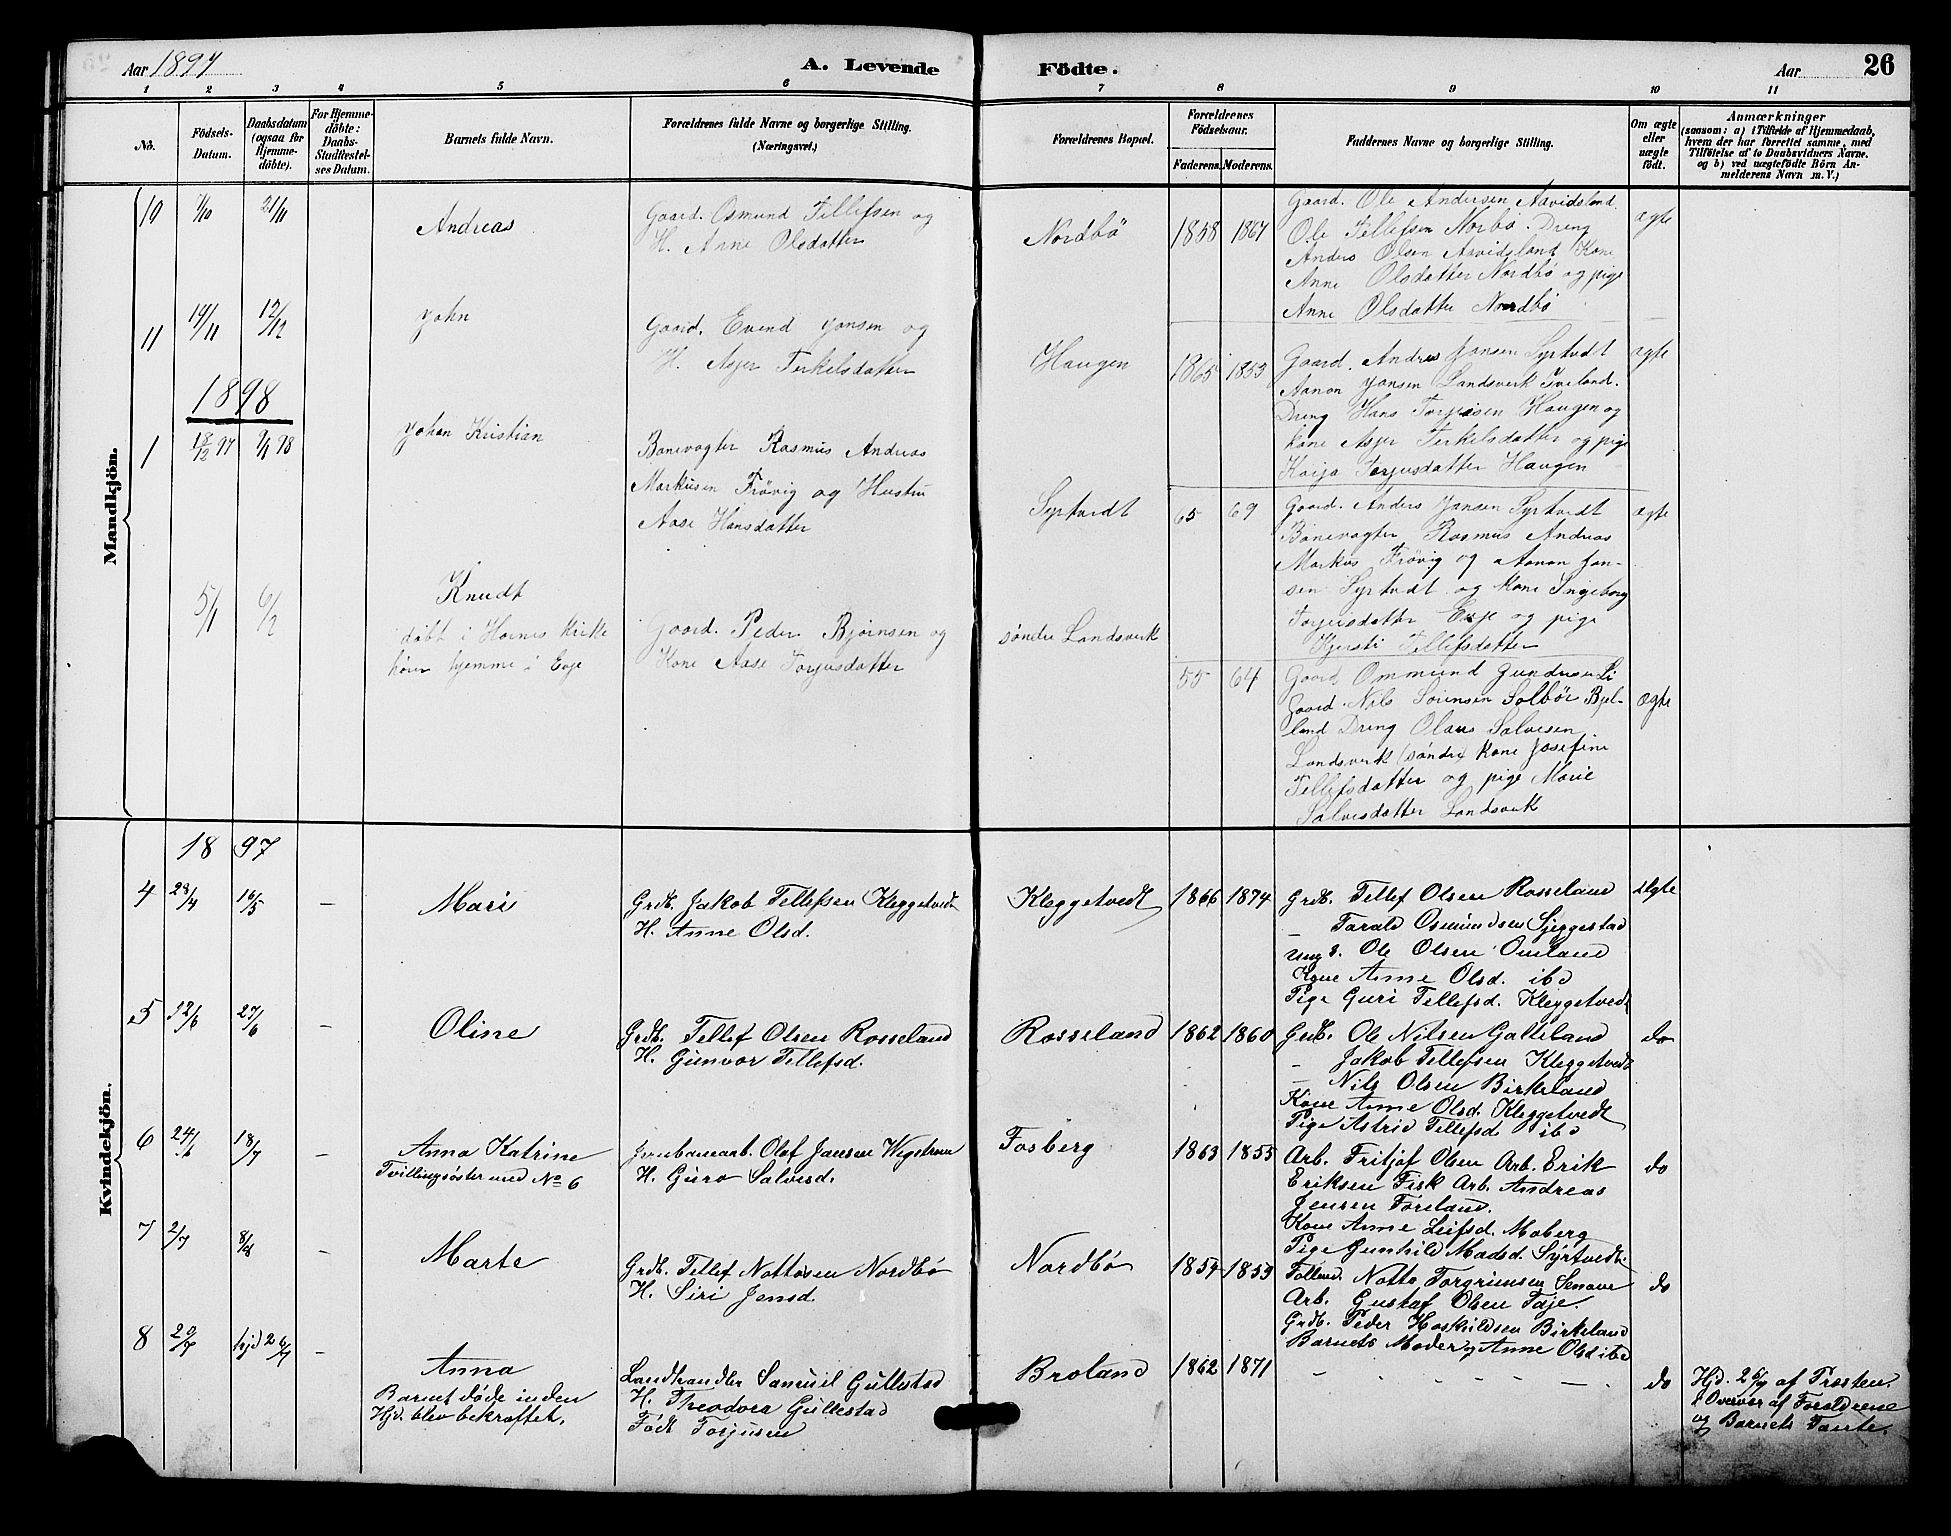 Aar 1897
A. Levende
Födte.
Aar
26
1 2 3 4 5 6 7 8 9 10 11
No.
Födsels-
Datum.
Daabsdatum
(ogsaa for
Hjemme-
döbte).
For Hjemme-
döbte:
Daabs-
Stadfæstel-
ses Datum.
Barnets fulde Navn.
Forældrenes fulde Navne og borgerlige Stilling.
(Næringsvei.)
Forældrenes Bopæl.
Forældrenes
Födselsaar.
Faderens. Moderens.
Faddernes Navne og borgerlige Stilling.
Om ægte
eller
uægte
födt.
Anmærkninger
(saasom: a) i Tilfælde af Hjemmedaab,
hvem der har forrettet samme, med
Tilföielse af to Daabsvidners Navne.
og b) ved uægtefödte Börn An-
melderens Navn m. V.)
Mandkjön.
10 1/10 21/11
Andreas
Gaard. Osmund Tellefsen og
H. Anne Olsdatter
Nordbö
1858 1867
Gaard. Ole Andersen Aavidsland
Ole Tellefsen Norbö. Dreng
Anders Olsen Aavidsland Kone
Anne Olsdatter Nordbö og pige
Anne Olsdatter Nordbö
ægte
11 14/11 12/12
John
Gaard. Evend Jansen og
H. Asjer Terkelsdatter
Haugen
1865 1853
Gaard. Andres Jansen Syrtvedt
Aanon Jansen Landsverk Iveland.
Dreng Hans Torjusen Haugen og
kone Asjer Terkelsdatter og pige
Kaija Torjusdatter Haugen
ægte
1898
1 18/12 97 9/1 98
Johan Kristian
Banevogter Rasmus Andreas
Markusen Frövig og Hustru
Aase Hansdatter
Syrtvedt
65 69
Gaard. Anders Jansen Syrtvedt
Banevogter Rasmus Andreas
Markus Frövig og Aanon Jan-
sen Syrtvedt og kone Ingeborg
Torjusdatter Evje og pige
Kjersti Tellefsdatter
ægte
5/1 6/2
Knudt
döbt i Hornes kirke
hører hjemme i Evje
Gaard. Peder Bjørnsen og
Kone Aase Torjusdatter
søndre Landsverk
55 64
Gaard Ommund Gundersen Li
Gaard. Nils Sörensen Solbör Bjel-
land Dreng Olaus Salvesen
Landsverk (søndre) kone Josefine
Tellefsdatter og pige Marie
Salvesdatter Landsverk
ægte
Kvindekjön.
1897
4 28/4 16/5 —
Mari
Grdb. Jakob Tellefsen Kleggetvedt
H. Anne Olsd.
Kleggetvedt
1866 1874
Grdb. Tellef Olsen Rosseland
— Tarald Osmundsen Sjeggestad
Ung k. Ole Olsen Omland
Kone Anne Olsd. ibd
Pige Guri Tellefsd. Kleggetvedt
Ægte
5 12/6 27/6 —
Oline
Grdb. Tellef Olsen Rosseland
H. Gunvor Tellefsd.
Rosseland
1862 1860
Grdb. Ole Nilsen Galteland
— Jakob Tellefsen Kleggetvedt
— Nils Olsen Birkeland
Kone Anne Olsd. Kleggetvedt
Pige Astrid Tellefsd. ibd
do
6 24/6 18/7
Anna Katrine
Tvillingsøster med No 6
Jernbanearb. Olaf Jansen Wigstrøm
H. Guro Salvesd.
Fosberg
1863 1855
Arb. Fritjof Olsen Arb. Erik
Eriksen Fisk Arb. Andreas
Jensen Føreland.
Kone Anne Leifsd. Moberg
Pige Gunhild Madsd. Syrtvedt
do
7 2/7 8/8 —
Marte
Grdb. Tellef Nottosen Nordbø
H. Siri Jensd.
Nordbø
1854 1853
Notto Torgrimsen Senove
Arb. Gustaf Olsen Faje.
Grdb. Peder Haskildsen Birkeland
Barnets Moder og Anne Olsd ibd
do
8 20/7 hjd 26/7 —
Anna
Barnet døde inden
Hjd. blev bekræftet.
Landhandler Samuil Gullestad
H. Theodora Gullestad
Født Torjusen
Broland
1862 1871
— — — — — —
do
Hjd. 26/7 af Præsten.
i Overvær af Forældrene
og Barnets Tante.